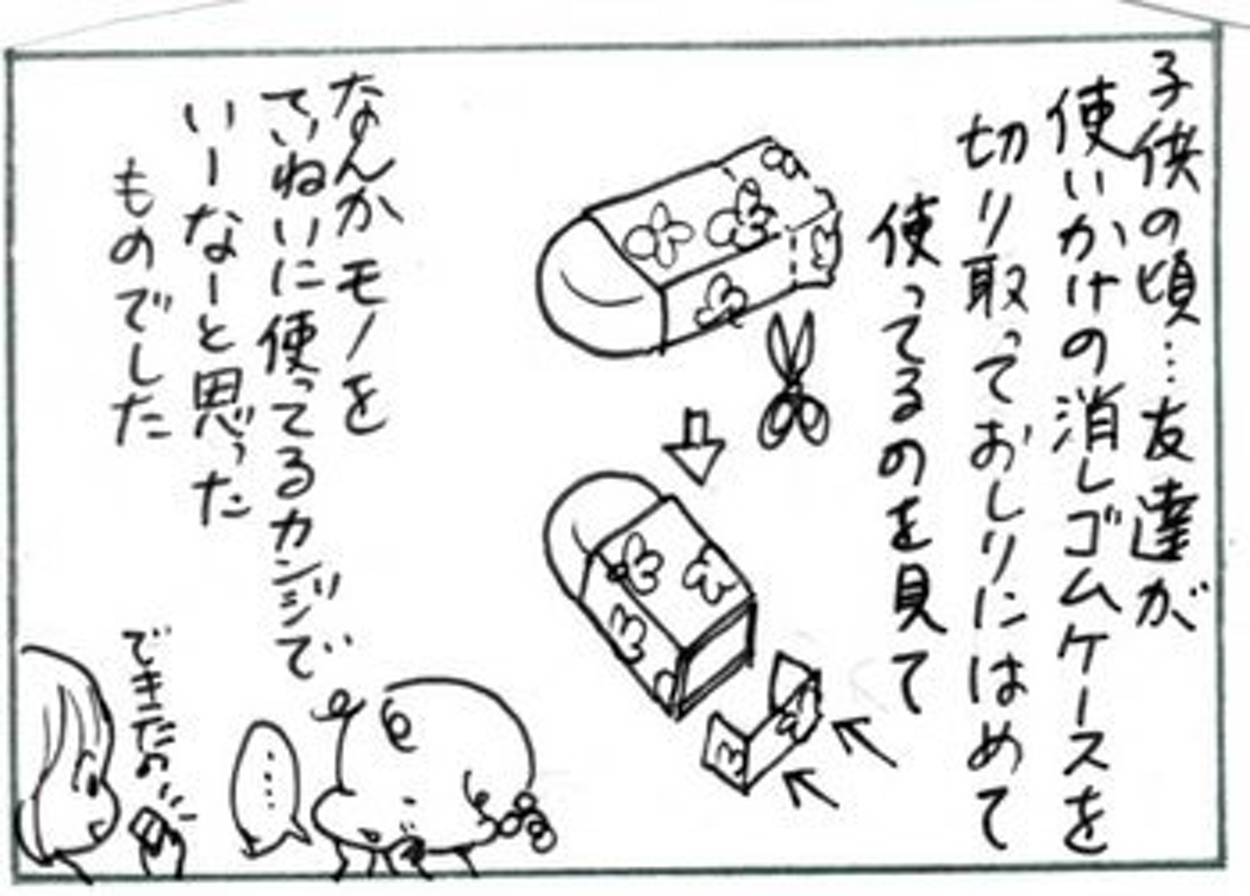 子供の頃…友達が
使いかけの消しゴムケースを
切り取っておしりにはめて
使ってるのを見て
なんかモノを
ていねいに使ってるカンジで
いーなーと思った
ものでした
……
できたの